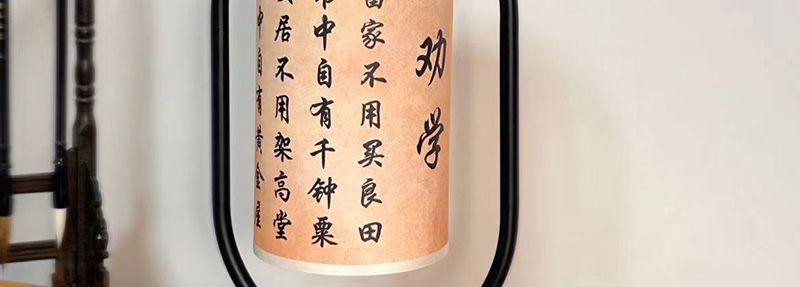 劝学
富家不用买良田
书中自有千钟粟
居不用架高堂
中自有黄金屋